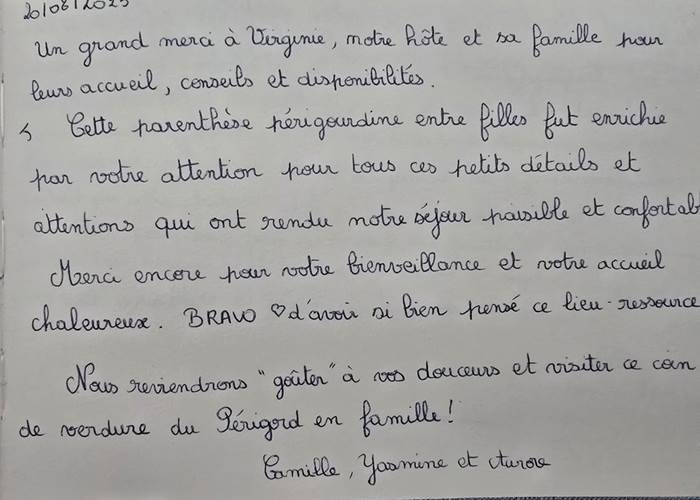 20/08/2023
Un grand merci à Virginie, notre hôte et sa famille pour
leurs accueil, conseils et disponibilités.
Cette parenthèse périgourdine entre filles fut enrichie
par votre attention pour tous ces petits détails et
attentions qui ont rendu notre séjour paisible et confortab
Merci encore pour votre bienveillance et votre accueil
chaleureux. BRAVO ♡ d'avoir si bien pensé ce lieu-ressource
Nous reviendrons "goûter" à vos douceurs et visiter ce coin
de verdure du Périgord en famille !
Camille, Yasmine et Aurore